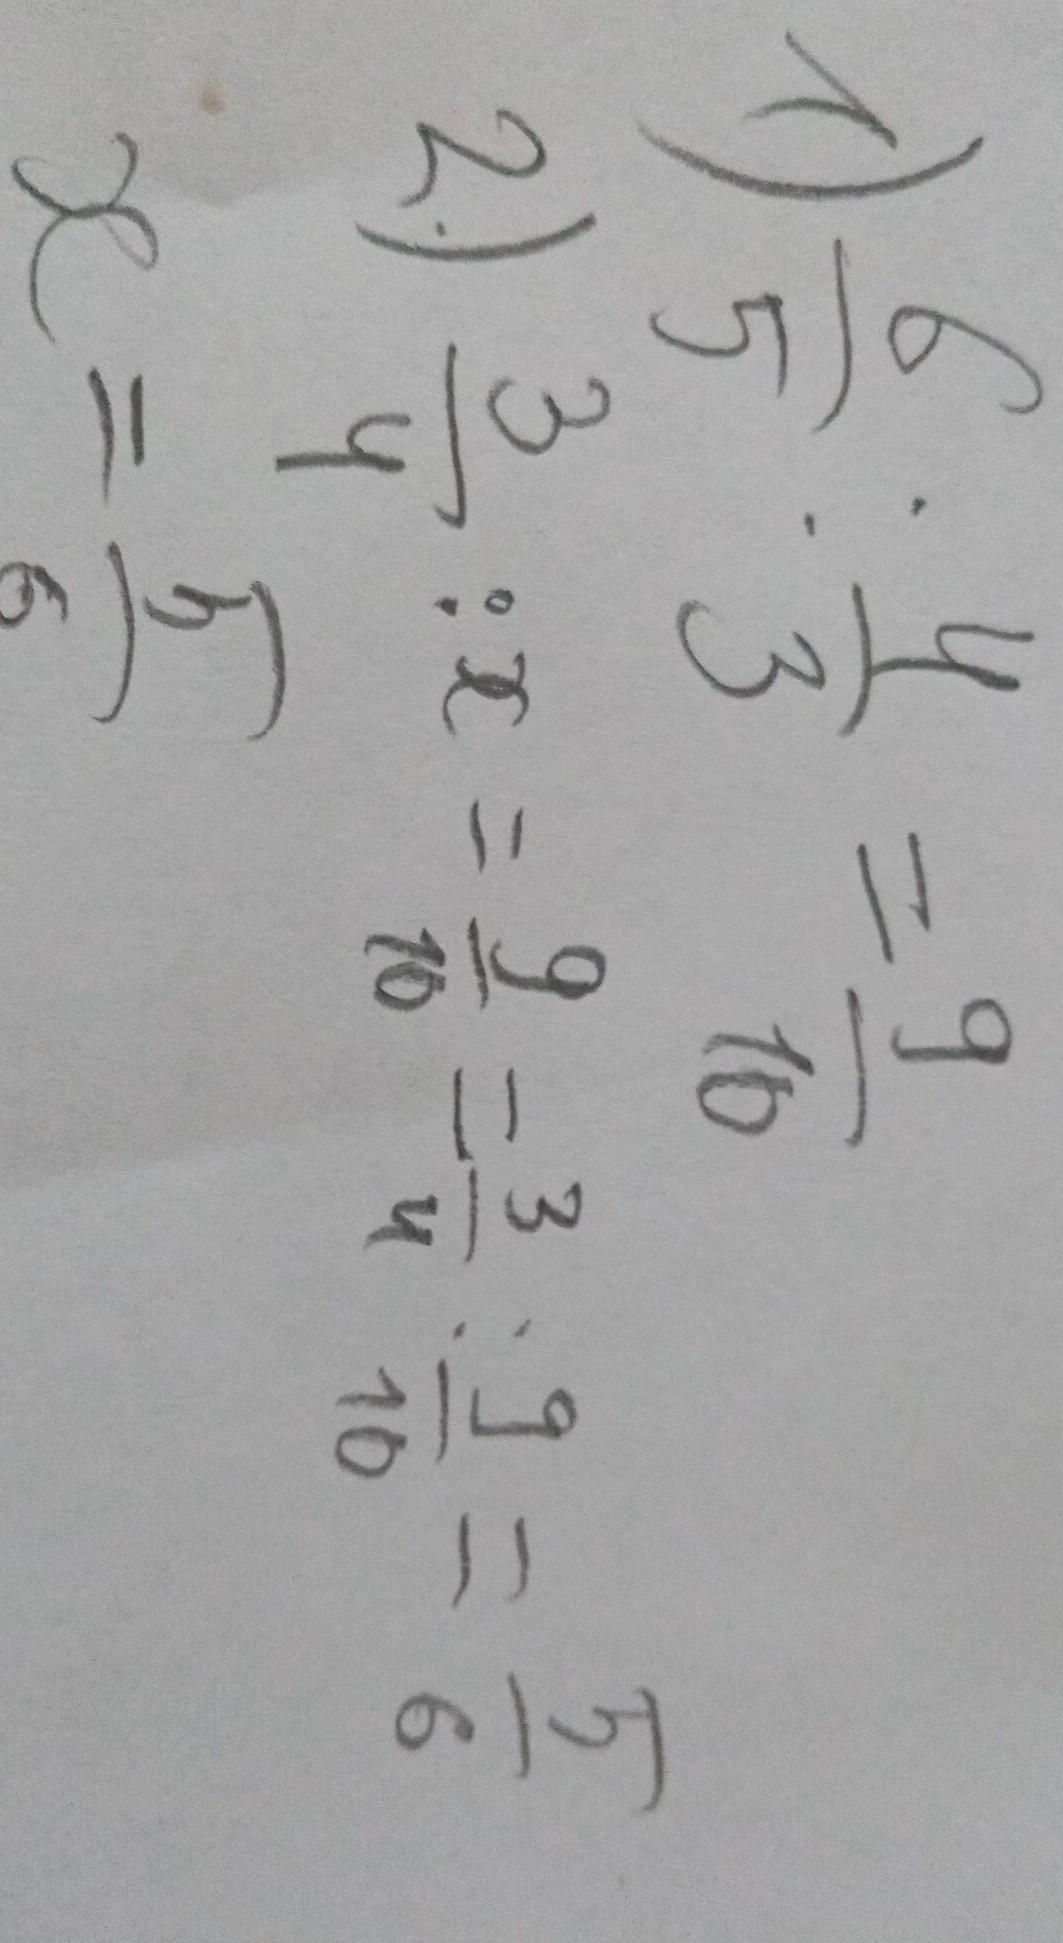 1) 6/5 : 4/3 = 9/10
2) 3/4 : x = 9/10 = 3/4 : 9/10 = 5/6
x = 5/6